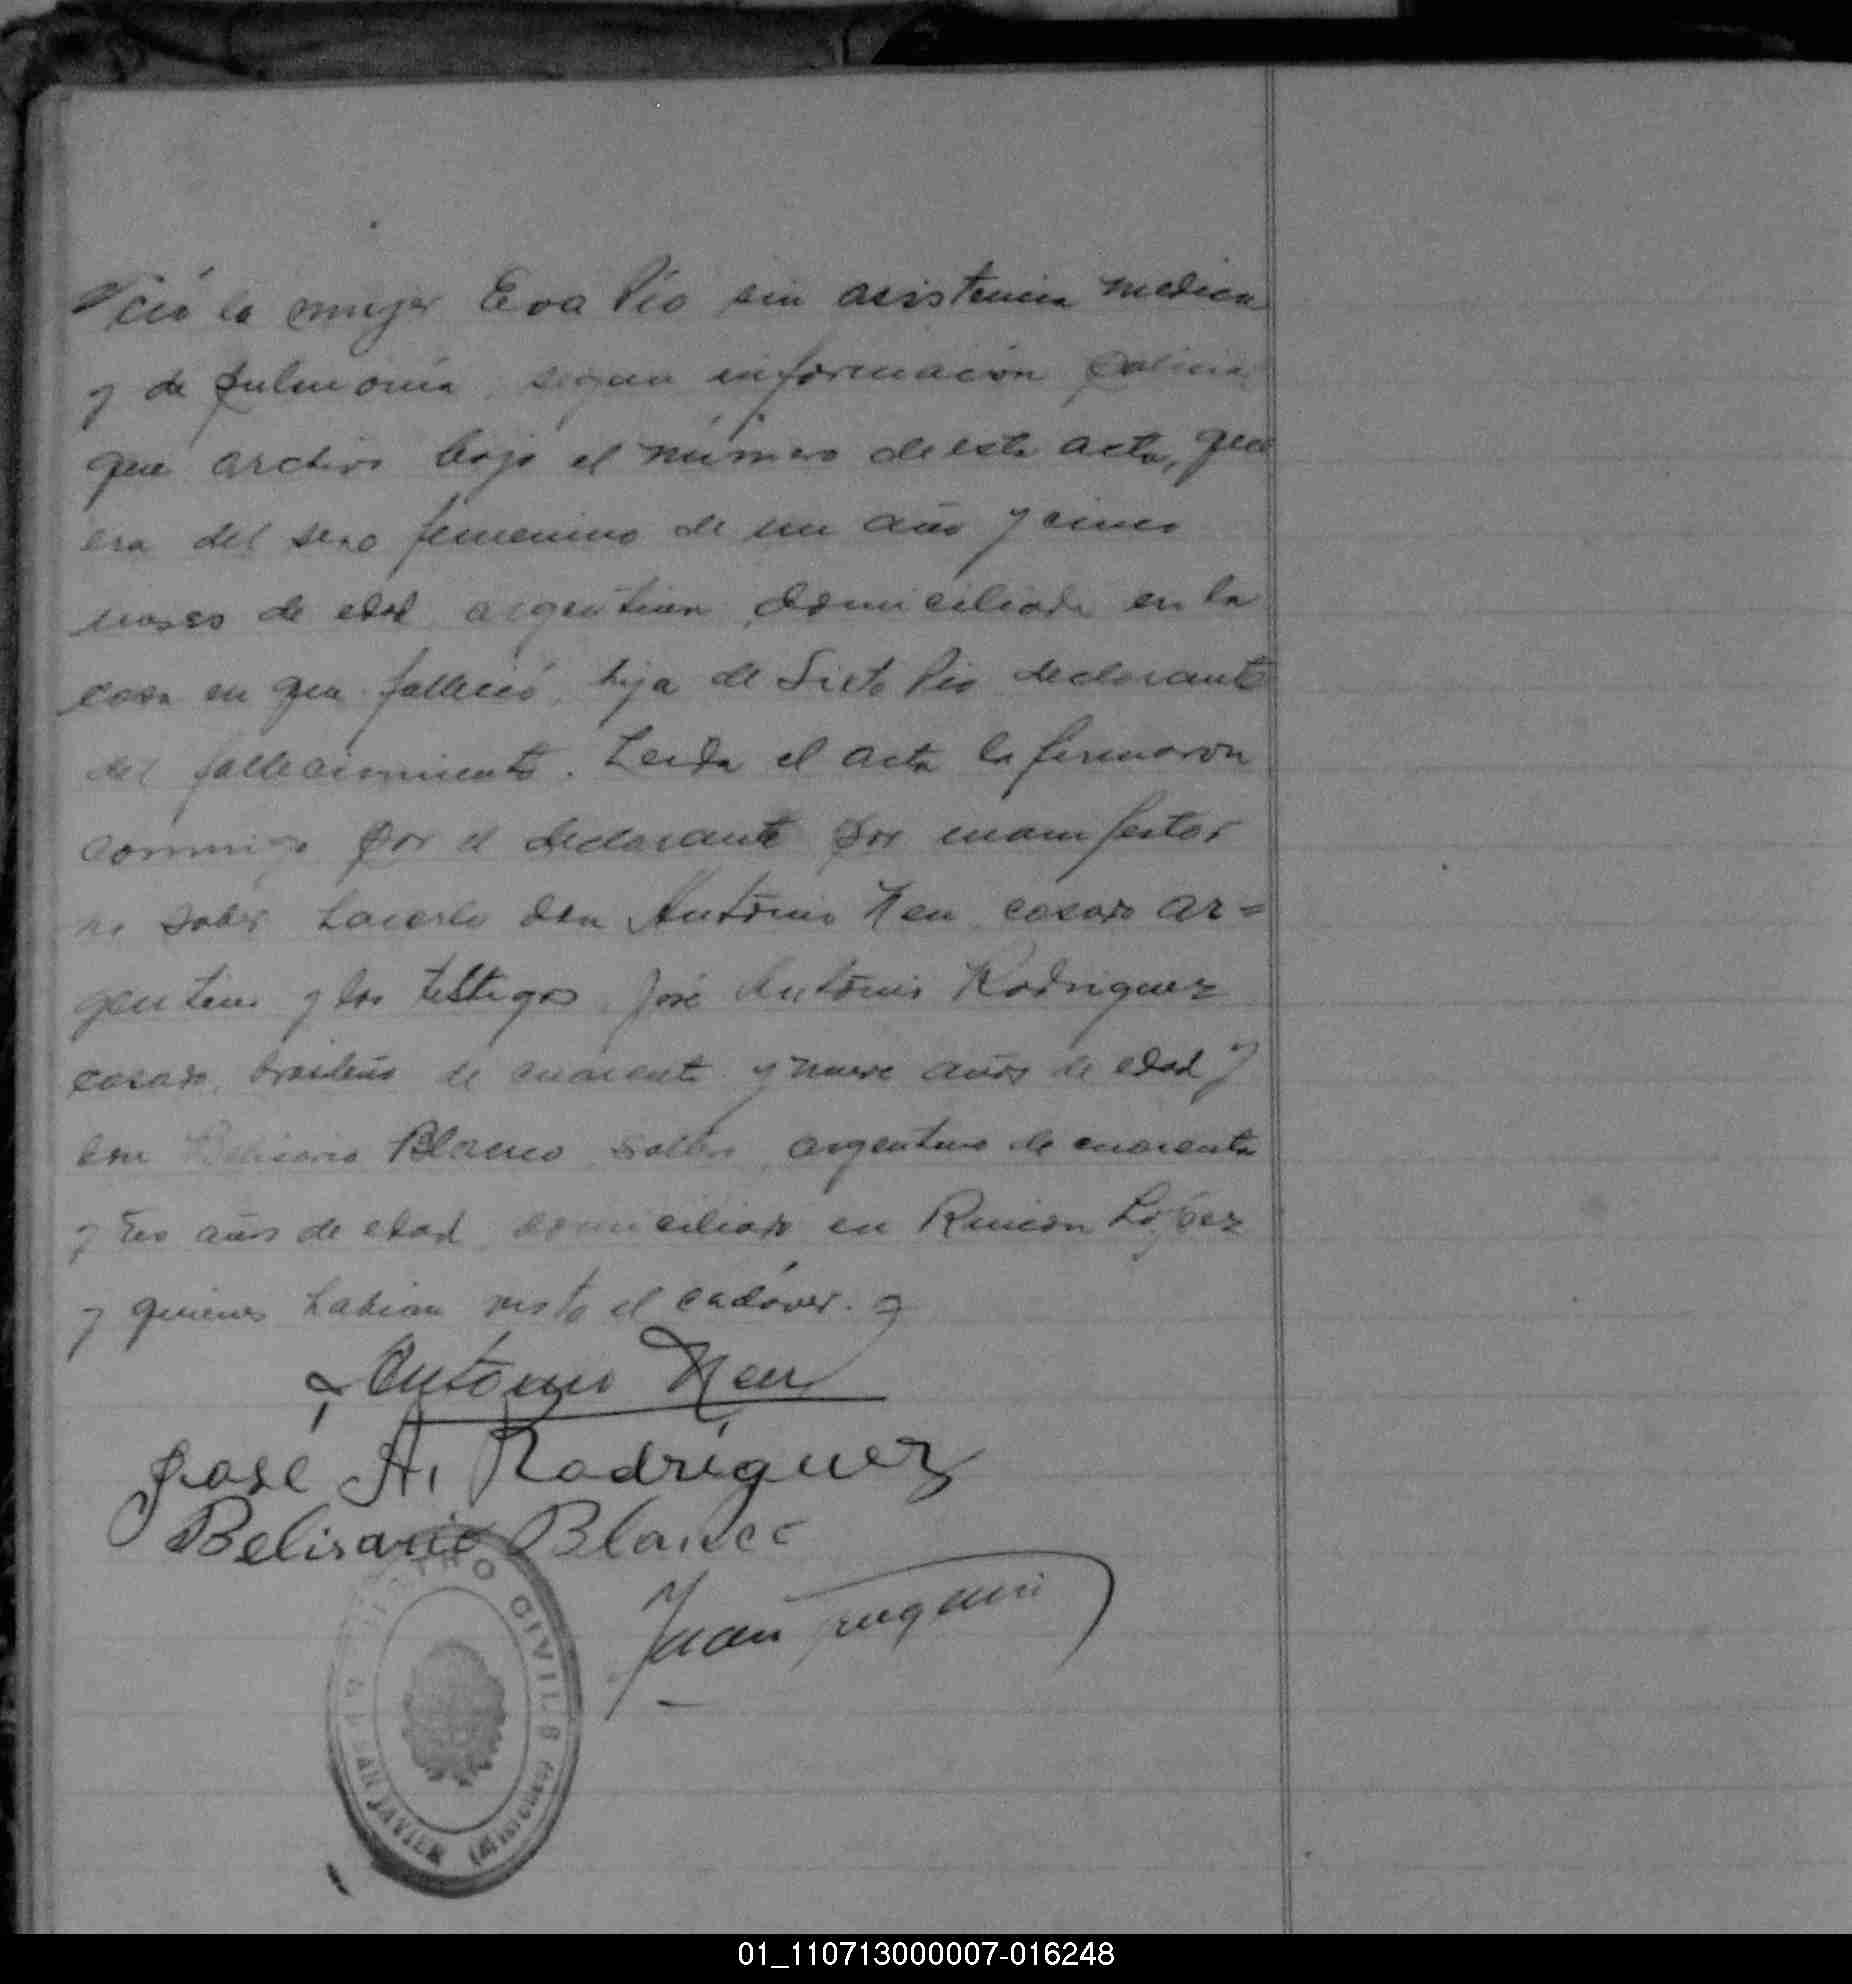 ció la mujer Eva Pío sin asistencia medica
y de pulmonía, segun información policial
que archivo bajo el número de esta acta, que
era del sexo femenino de un año y cinco
meses de edad, argentina, domiciliada en la
casa en que falleció, hija de Sixto Pío declarante
del fallecimiento. Leida el acta la firmaron
conmigo por el declarante por manifestar
no saber hacerlo don Antonio Neu, casado ar=
gentino y los testigos, José Antonio Rodriguez
casado, brasileño de cuarenta y nueve años de edad y
don Belisario Blanco, soltero, argentino de cuarenta
y tres años de edad, domiciliado en Rincon López
y quienes habian visto el cadáver.
Antonio Neu
José A. Rodríguez
Belisario Blanco
Juan
REGISTRO CIVIL
SAN JAVIER (MISIONES)
01_110713000007-016248